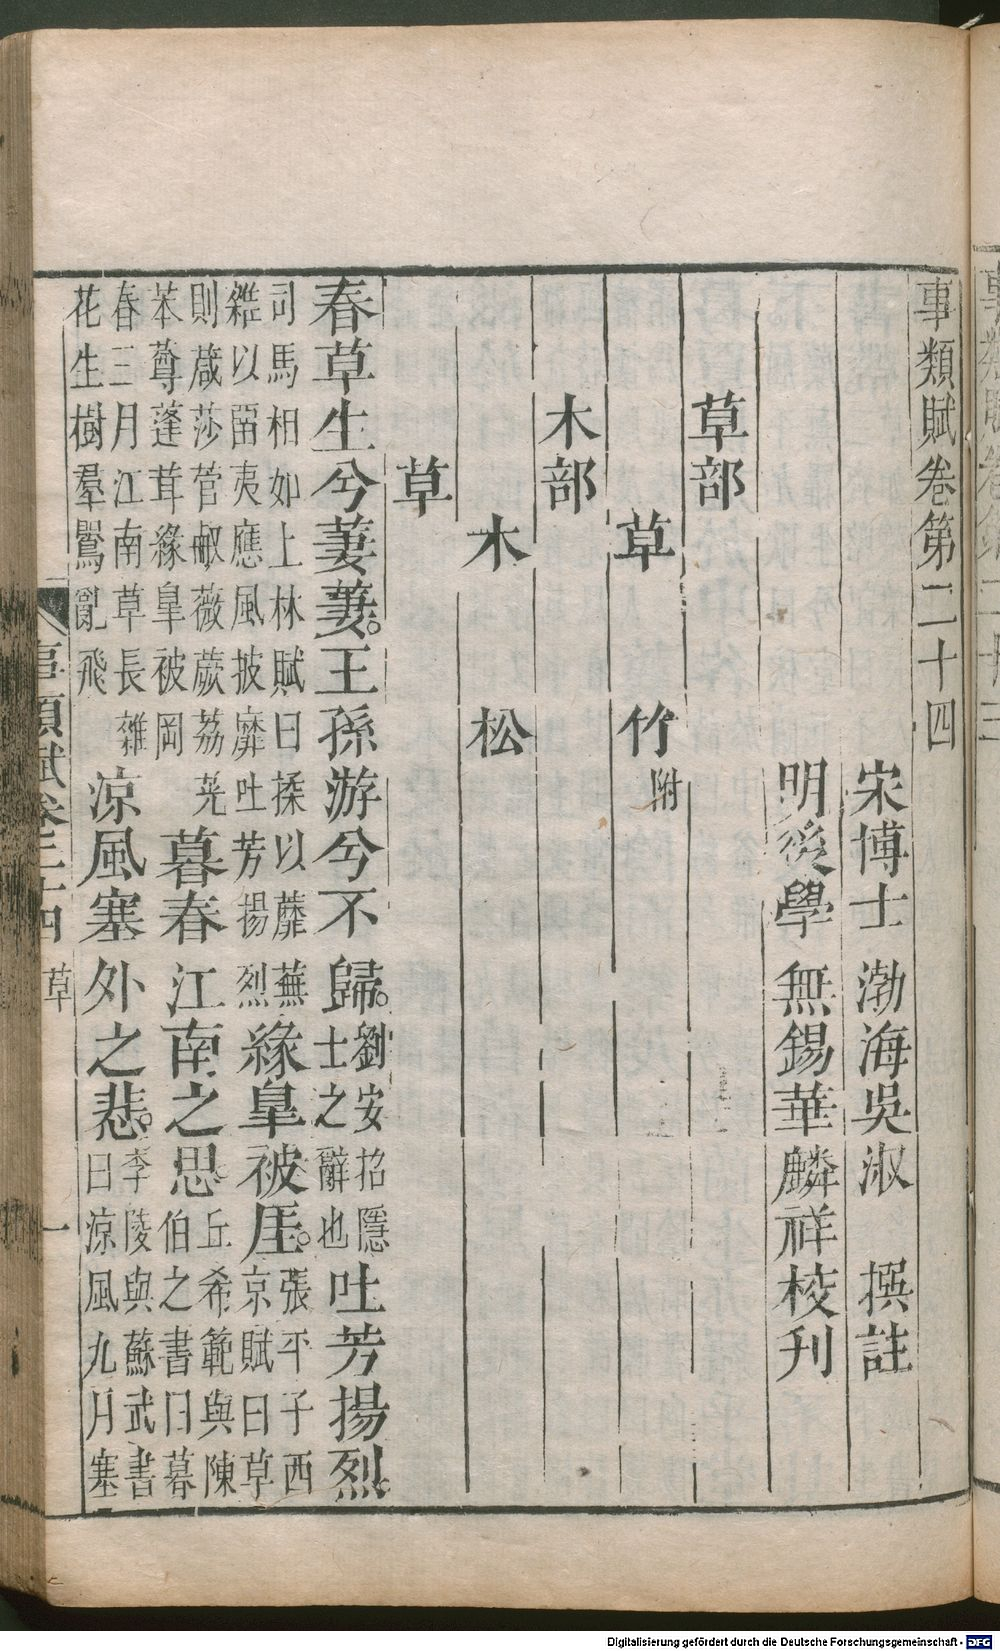 事類賦卷第二十四
宋博士渤海吳淑　撰註
明後學無錫華麟祥校刊
草部
草　竹附
木部
木　松
草
春草生兮萋萋。王孫游兮不歸。劉安招隱士之辭也吐芳揚烈。
司馬相如上林賦曰揉以蘼蕪雜以留夷應風披靡吐芳揚烈緣皐被厓。張平子西京賦曰草
則葴莎菅蒯薇蕨荔芫苯尊蓬茸緣皐被岡暮春江南之思。丘希範與陳伯之書曰暮
春三月江南草長雜花生樹羣鶯亂飛涼風塞外之悲。李陵與蘇武書曰涼風九月塞
事類賦卷二十四　草　一
Digitalisierung gefördert durch die Deutsche Forschungsgemeinschaft - DFG